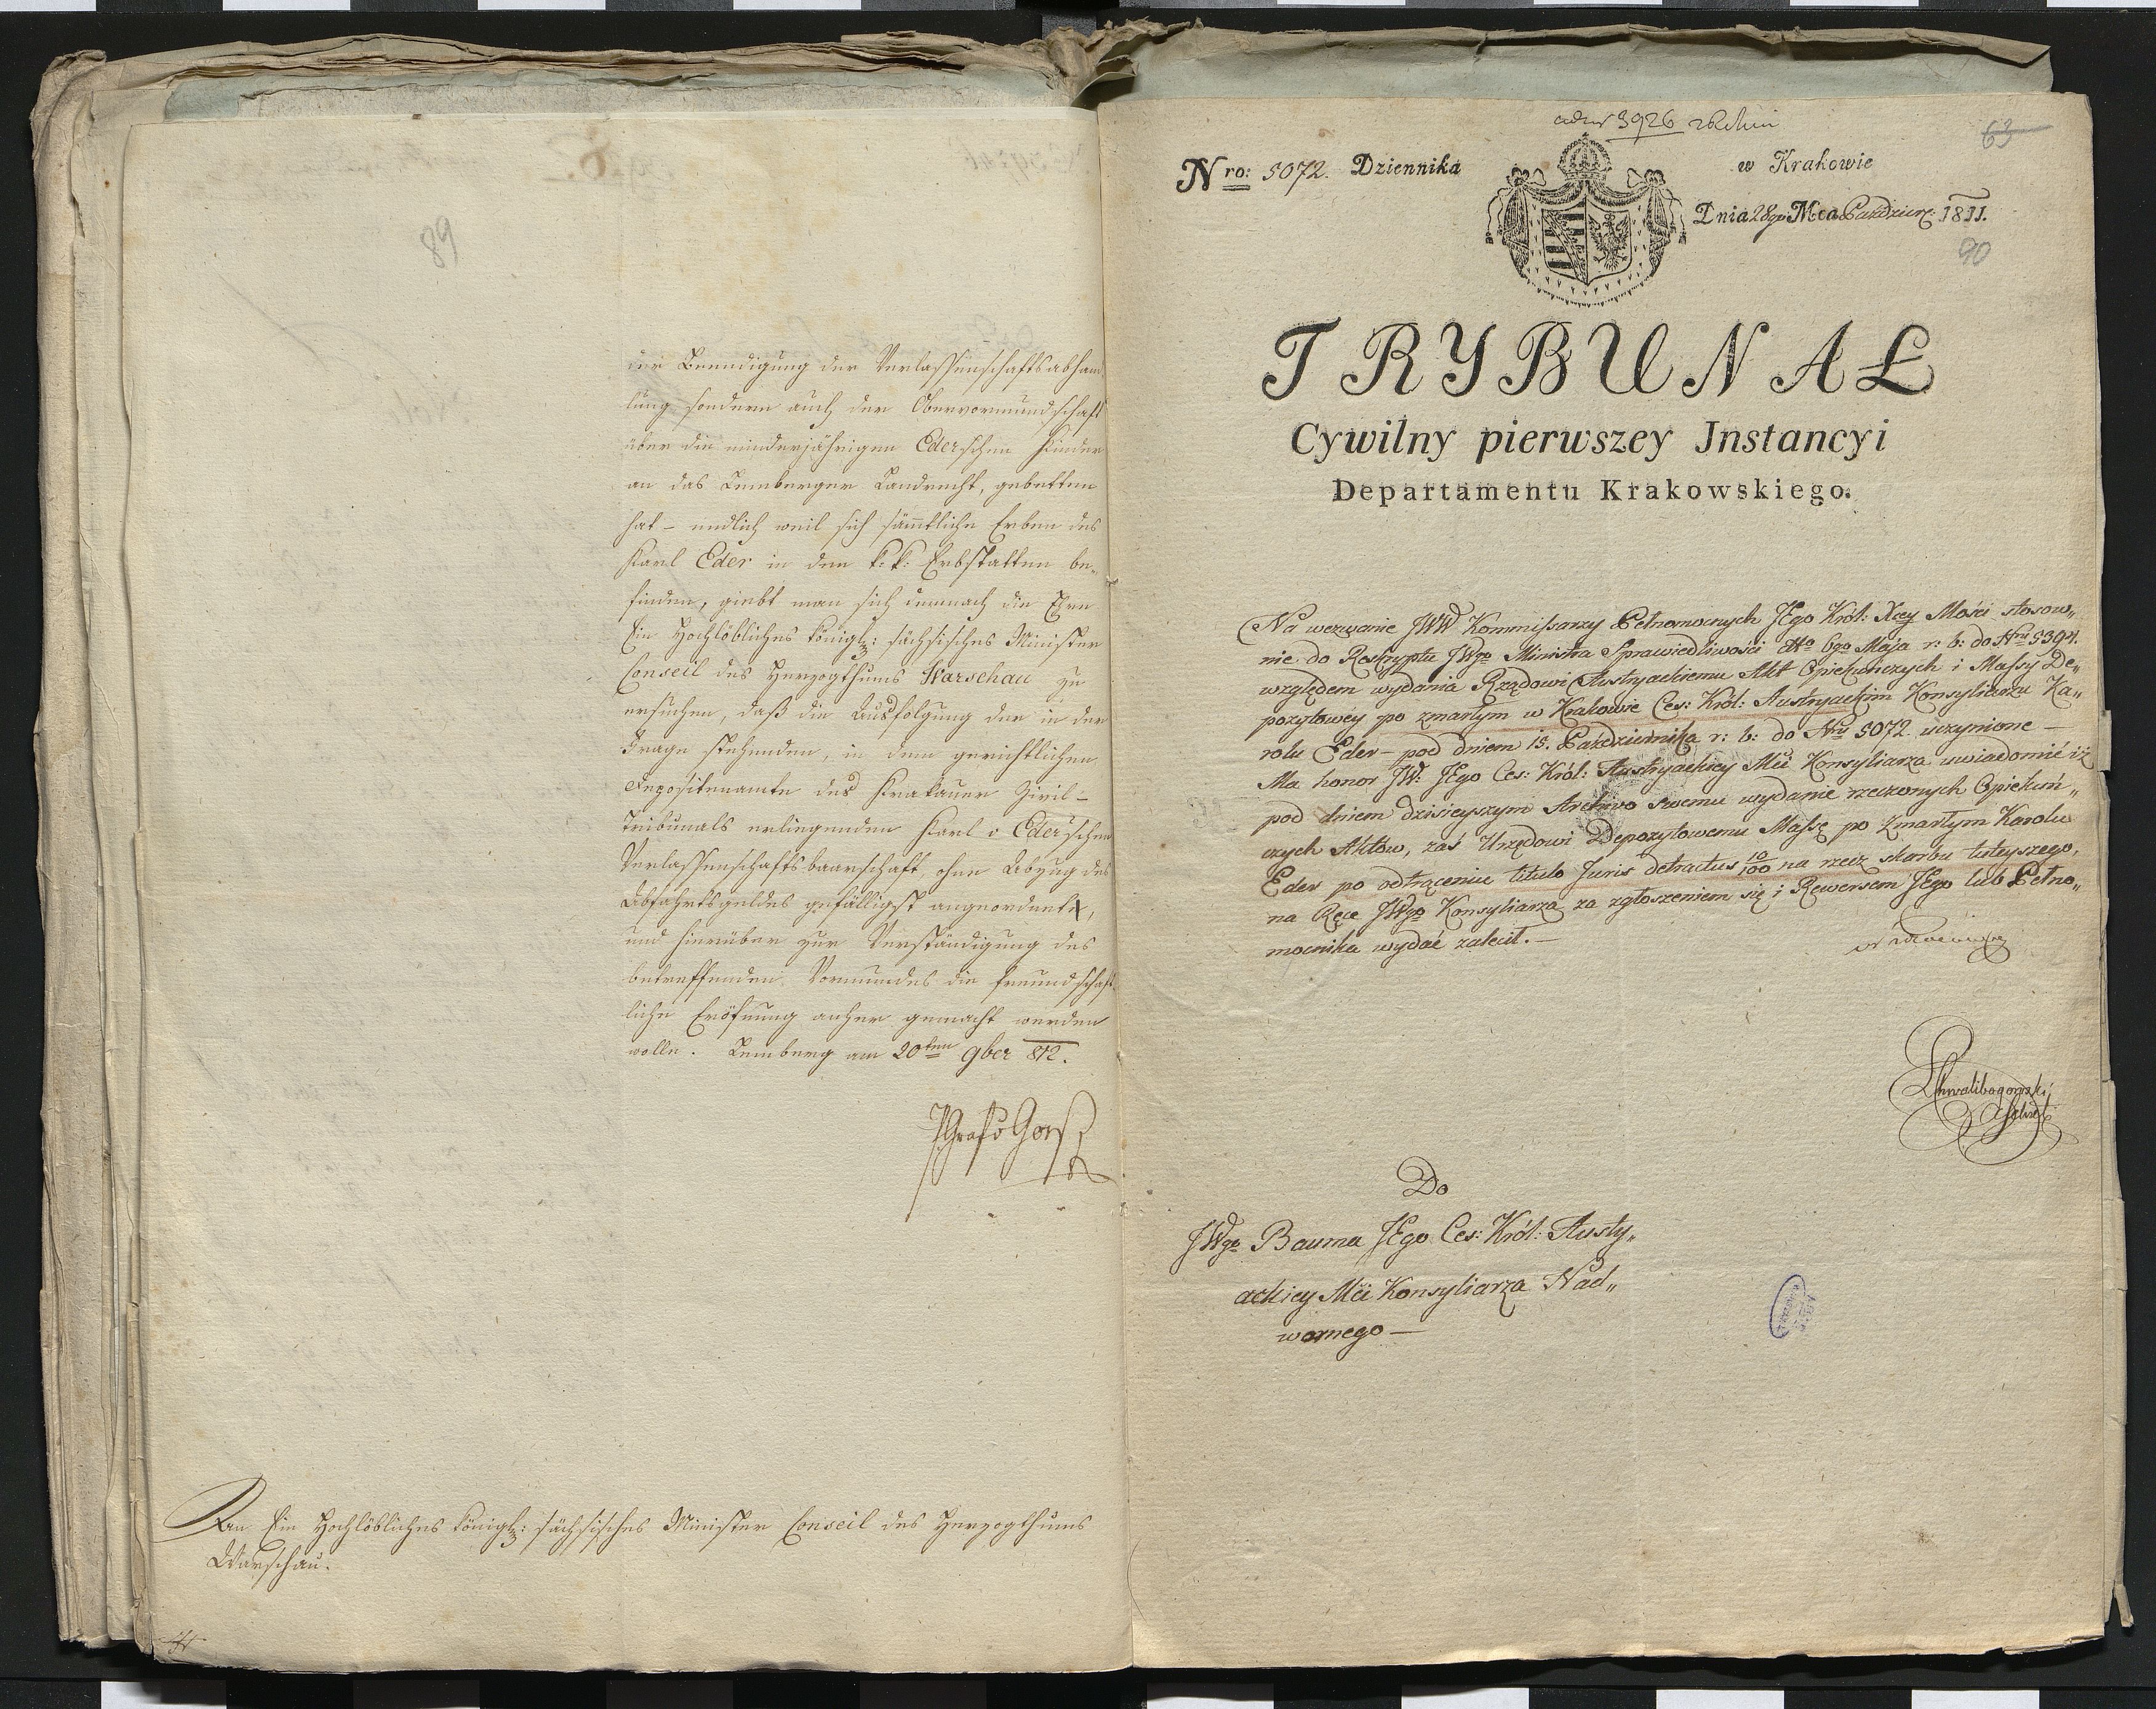 der Beendigung der Verlassenschaftsabhand
lung sondern auch der Obervormundschaft
über die minderjährigen Ederschen Kinder
an das Lemberger Landrecht, gebetten
hat – endlich weil sich sämtliche Erben des
Karl Eder in den k: k: Erbstatten be„
finden, giebt man sich demnach die Ehre
Ein Hochlöbliches königl: sächsisches Minister
Conseil des Herzogthums Warschau zu
ersuchen, daß die Ausfolgung der in der
Frage stehenden, in dem gerichtlichen
Depositenamte des Krakauer Zivil–
Tribunals erliegenden Karl v Eder'schen
Verlassenschaftsbaarschaft, ohne Abzug des
Abfahrtsgeldes gefälligst angeordnet,
und hierüber zur Verständigung des
betreffenden Vormundes die freundschaft
liche Eröfnung anher gemacht werden
wolle. Lemberg am 20ten 9ber 812.
An Ein Hochlöbliches königl: sächsisches Minister Conseil des Herzogthums
Warschau.
3926
63
Nro: 5072. Dziennika
w Krakowie
Dnia 28go Mca Paździer: 1811.
90
TRYBUNAŁ
Cywilny pierwszey Jnstancyi
Departamentu Krakowskiego.
Na wezwanie JWW Kommissarzy Pełnomocnych JEgo Król: Xcey Mości stosow„
nie do Reskryptu JWgo Ministra Sprawiedliwości dtto 6go Maja r: b: do Nri 5394.
względem wydania Rządowi Austryackiemu Akt Opiekuńczych i Massy De„
pozytowey po zmarłym w Krakowie Ces: Król: Austryackim Konsyliarzu Ka„
rolu Eder – pod dniem 15. Października r: b: do Nru 5072 uczynione –
Ma honor JW: JEgo Ces: Król: Austryackiey Mci Konsyliarza uwiadomić iż
pod dniem dzisieyszym Archivo swemu wydanie rzeczonych Opiekuń„
czych Aktów, zaś Urzędowi Depozytowemu Massę po Zmarłym Karolu
Eder po odtrąceniu titulo Juris detractus 10/100 na rzecz skarbu tuteyszego,
na Ręce JWgo Konsyliarza za zgłoszeniem się i Rewersem JEgo lub Pełno„
mocnika wydać zalecił. –
Chwalibogowski
Do
JWgo Bauma JEgo Ces: Król: Austy„
ackiey Mci Konsyliarza Nad„
wornego –